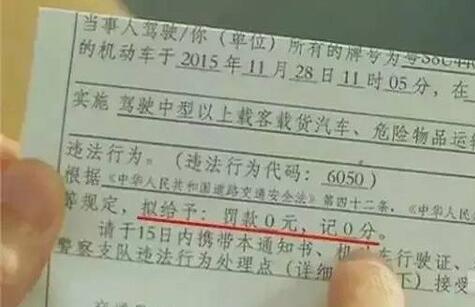 当事人驾驶/你（单位）所有的牌号为粤S8U
的机动车于 2015 年 11 月 28 日 11 时 05 分，在
实施 驾驶中型以上载客载货汽车、危险物品运
违法行为。（违法行为代码：6050）
根据《中华人民共和国道路交通安全法》第四十二条，《中华人民
等规定，拟给予：罚款 0 元，记 0 分。
请于15日内携带本通知书、机 车行驶证、
警察支队违法行为处理点（详细 下）接受